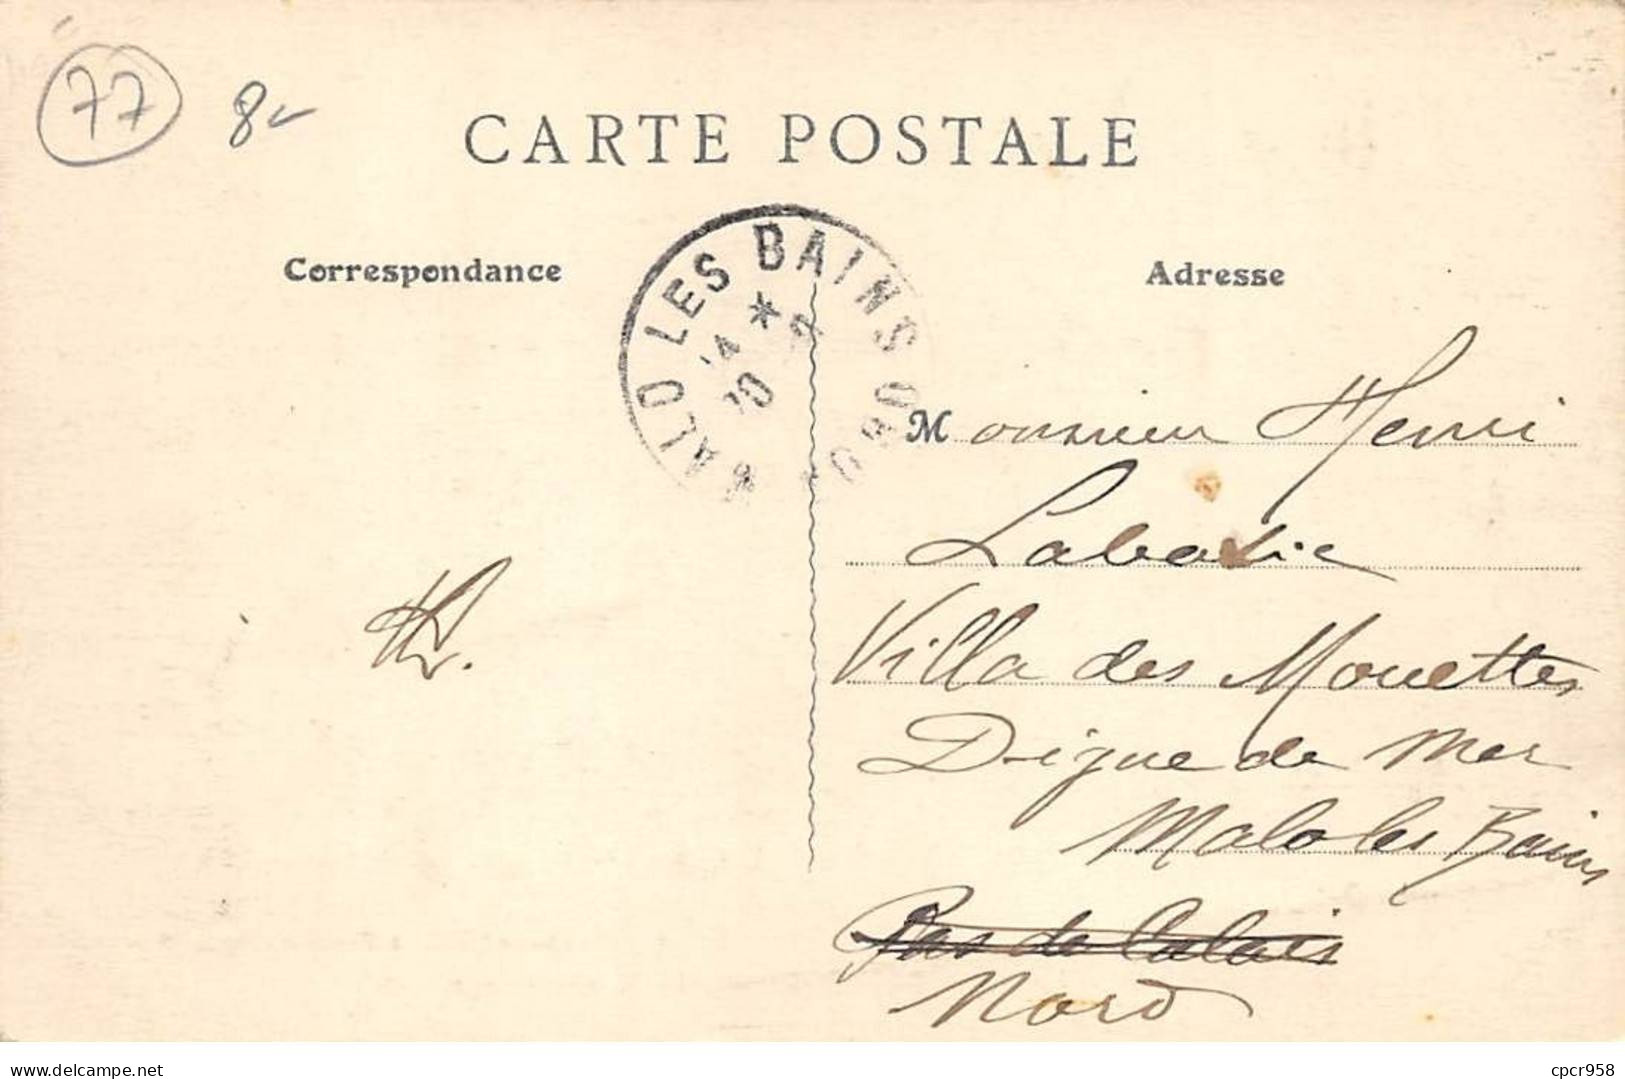 77 8
CARTE POSTALE
MALO LES BAINS NORD
Correspondance
Adresse
Monsieur Henri
Villa des Mouettes
Digue de Mer
Malo les Bains
Pas de Calais
Nord
www.delcampe.net
cpcr958